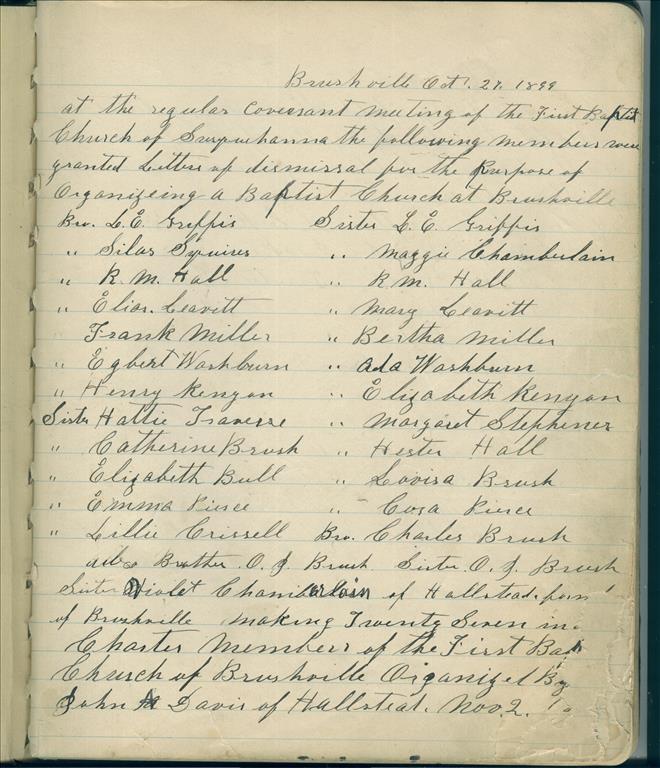 Brushville Oct. 27. 1899
at the regular Covenant meeting of the First Baptist
Church of Susquehanna the following members were
granted Letters of dismissal for the Purpose of
Organizeing a Baptist Church at Brushville
Bro. L. E. Griffis Sister L. E. Griffis
" Silas Squires " Maggie Chamberlain
" R. M. Hall " R. M. Hall
" Elias. Leavitt " Mary Leavitt
Frank Miller " Bertha Miller
" Egbert Washburn " Ada Washburn
" Henry Kenyon " Elizabeth Kenyon
Sister Hattie Traverse " Margaret Stephener
" Catherine Brush " Hester Hall
" Elizabeth Bull " Lovisa Brush
" Emma Pierce " Cora Pierce
" Lillie Crissell Bro. Charles Brush
also Brother. O. J. Brush Sister. O. J. Brush
Sister Violet Chamberlain of Hallstead.
of Brushville making Twenty Seven in
Charter Members of the First Bap
Church of Brushville Organized By
John A Davis of Hallstead. Nov. 2.